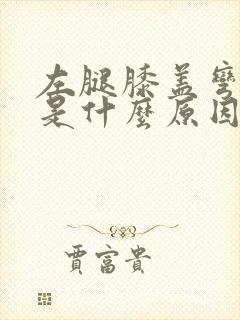 左腿膝盖弯
是什麼原因
賈富貴